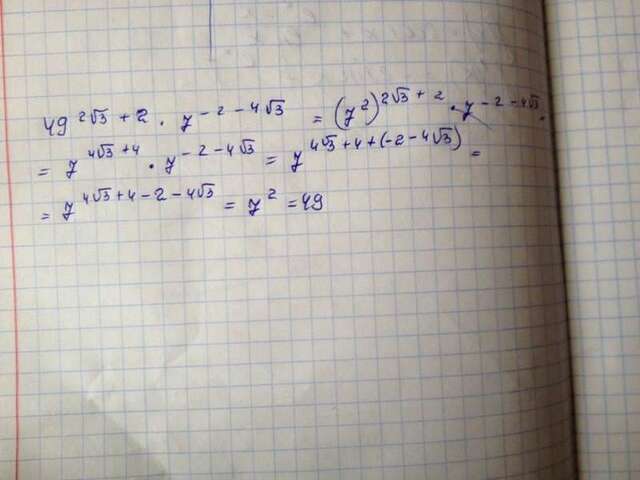 49^{2√3 + 2} · 7^{- 2 - 4√3} = (7^2)^{2√3 + 2} · 7^{- 2 - 4√3} .
= 7^{4√3 + 4} · 7^{- 2 - 4√3} = 7^{4√3 + 4 + (-2 - 4√3)} =
= 7^{4√3 + 4 - 2 - 4√3} = 7^2 = 49